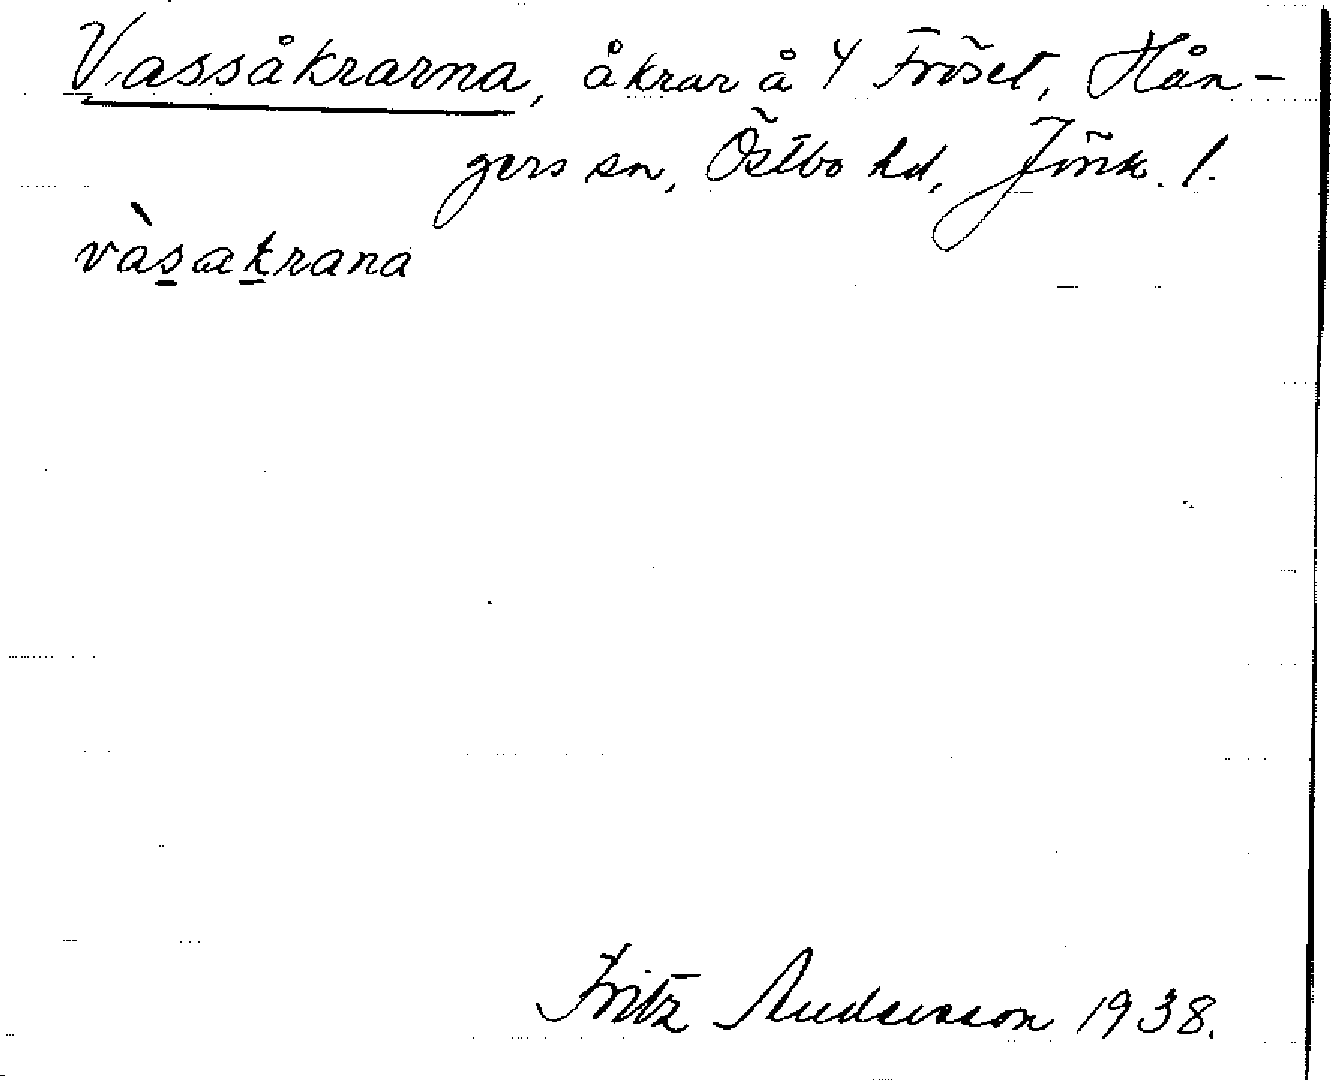 Vassåkrarna, åkrar å 4 Fröset, Hån-
gers sn, Östbo hd, Jönk. l.
vàsakrana
Fritz Andersson 1938.